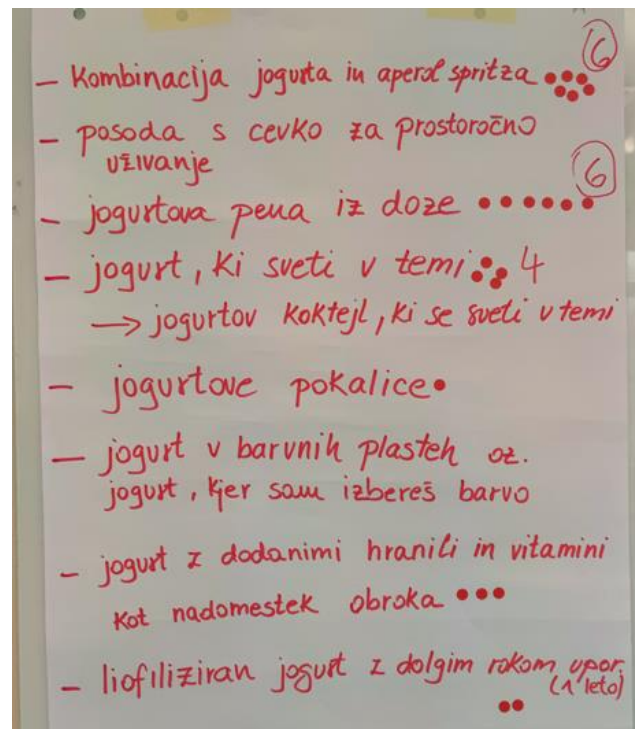 6
– kombinacija jogurta in aperol spritza
– posoda s cevko za prostoročno
uživanje
6
– jogurtova pena iz doze
– jogurt, ki sveti v temi 4
→ jogurtov koktejl, ki se sveti v temi
– jogurtove pokalice
– jogurt v barvnih plasteh oz.
jogurt, kjer sam izbereš barvo
– jogurt z dodanimi hranili in vitamini
kot nadomestek obroka
– liofiliziran jogurt z dolgim rokom upor.
(1 leto)